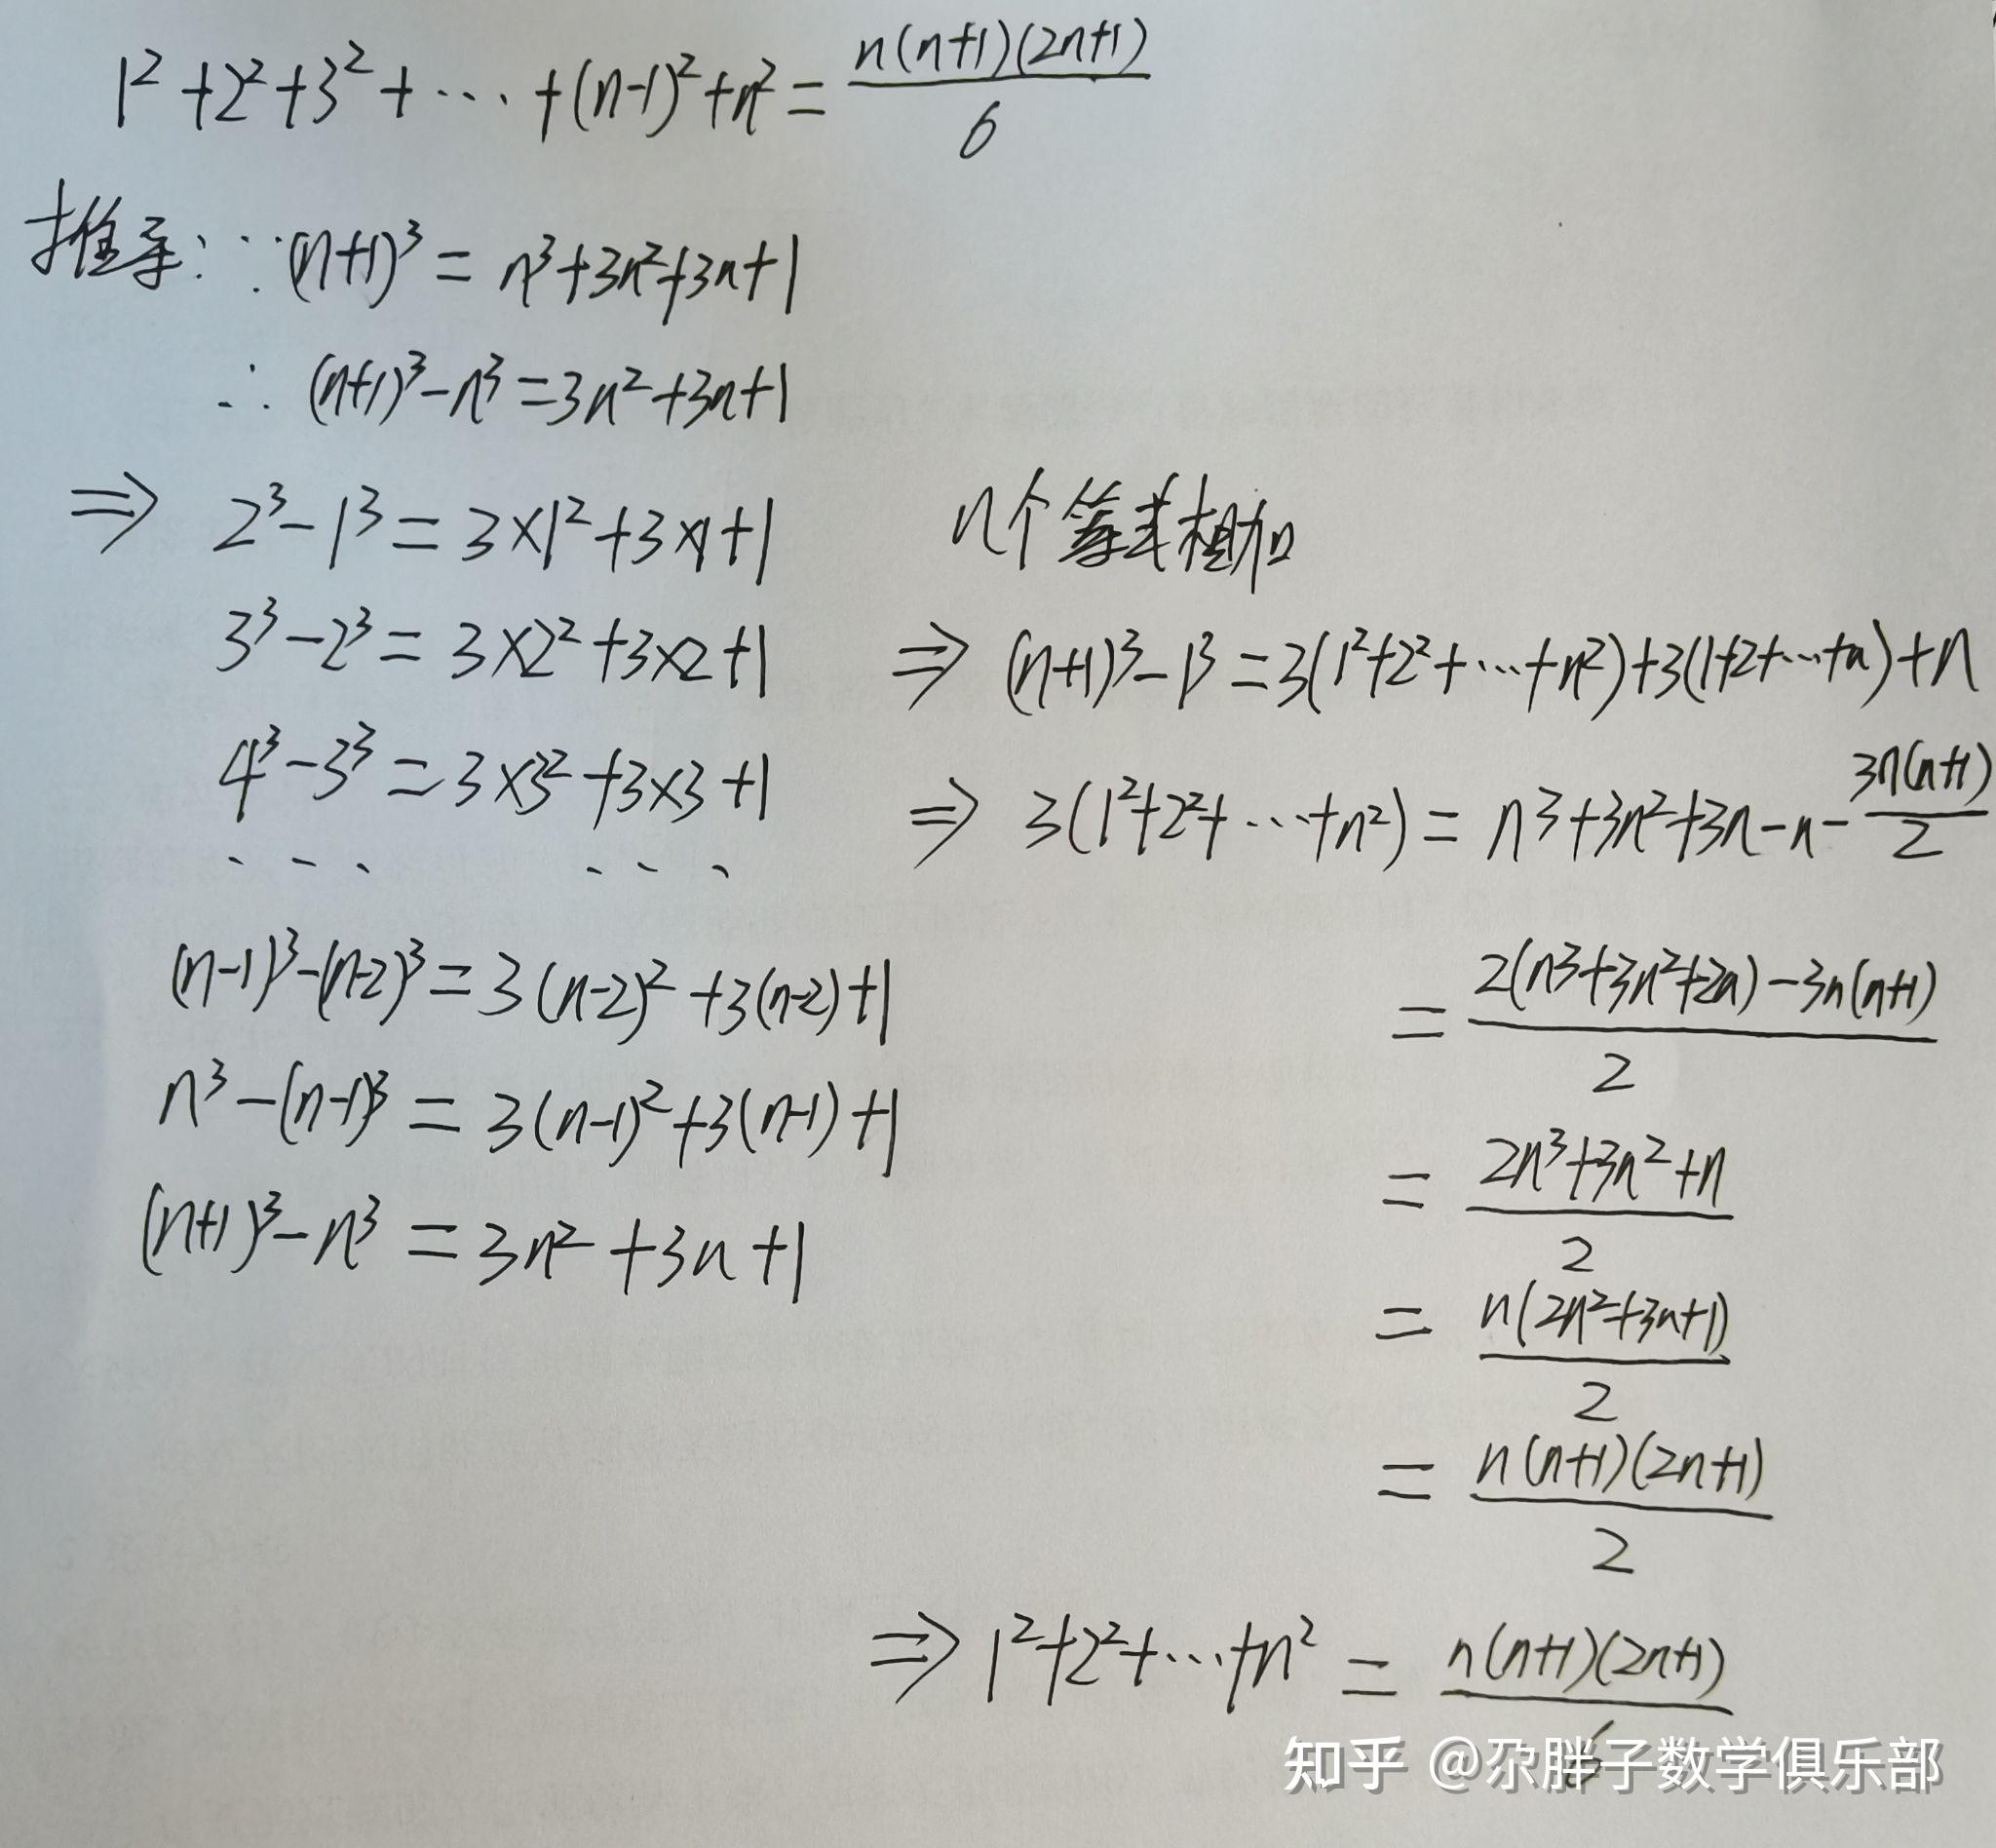 1²+2²+3²+⋯+(n-1)²+n²=n(n+1)(2n+1)/6
推导:∵(n+1)³=n³+3n²+3n+1
∴(n+1)³-n³=3n²+3n+1
⇒ 2³-1³=3×1²+3×1+1
3³-2³=3×2²+3×2+1
4³-3³=3×3²+3×3+1
... ...
(n-1)³-(n-2)³=3(n-2)²+3(n-2)+1
n³-(n-1)³=3(n-1)²+3(n-1)+1
(n+1)³-n³=3n²+3n+1
n个等式相加
⇒ (n+1)³-1³=3(1²+2²+⋯+n²)+3(1+2+⋯+n)+n
⇒ 3(1²+2²+⋯+n²)=n³+3n²+3n-n-3n(n+1)/2
=2(n³+3n²+2n)-3n(n+1)/2
=2n³+3n²+n/2
=n(2n²+3n+1)/2
=n(n+1)(2n+1)/2
⇒ 1²+2²+⋯+n²=n(n+1)(2n+1)/6
知乎 @尕胖子数学俱乐部